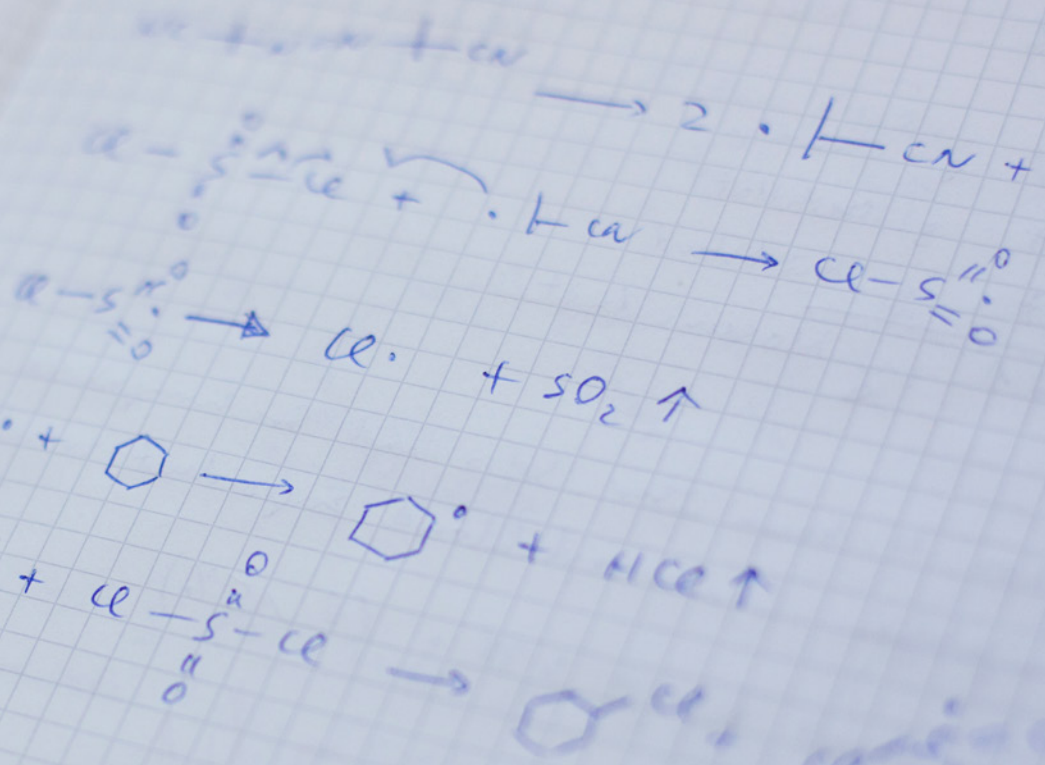 CN → 2 · CN +
Cl – S – Cl + · CN → Cl – S · = O = O
Cl – S · = O = O → Cl · + SO₂ ↑
· + → · + HCl ↑
+ Cl – S – Cl = O = O → Cl +